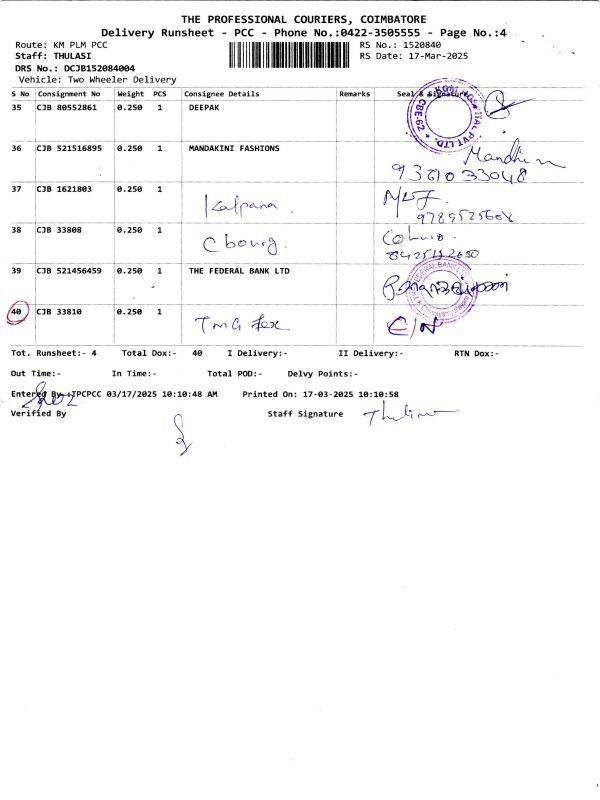 THE PROFESSIONAL COURIERS, COIMBATORE
Delivery Runsheet - PCC - Phone No.:0422-3505555 - Page No.:4
Route: KM PLM PCC RS No.: 1520840
Staff: THULASI RS Date: 17-Mar-2025
DRS No.: DCJB152084004
Vehicle: Two Wheeler Delivery
S No Consignment No Weight PCS Consignee Details Remarks Seal & Signature
35 CJB 80552861 0.250 1 DEEPAK
36 CJB 521516895 0.250 1 MANDAKINI FASHIONS
9381033048
37 CJB 1621803 0.250 1 Kalpana
38 CJB 33808 0.250 1 Cbourg.
39 CJB 521456459 0.250 1 THE FEDERAL BANK LTD
40 CJB 33810 0.250 1 TMG Fex C/N
Tot. Runsheet:- 4 Total Dox:- 40 I Delivery:- II Delivery:- RTN Dox:-
Out Time:- In Time:- Total POD:- Delvy Points:-
Entered By :TPCPCC 03/17/2025 10:10:48 AM Printed On: 17-03-2025 10:10:58
Verified By Staff Signature